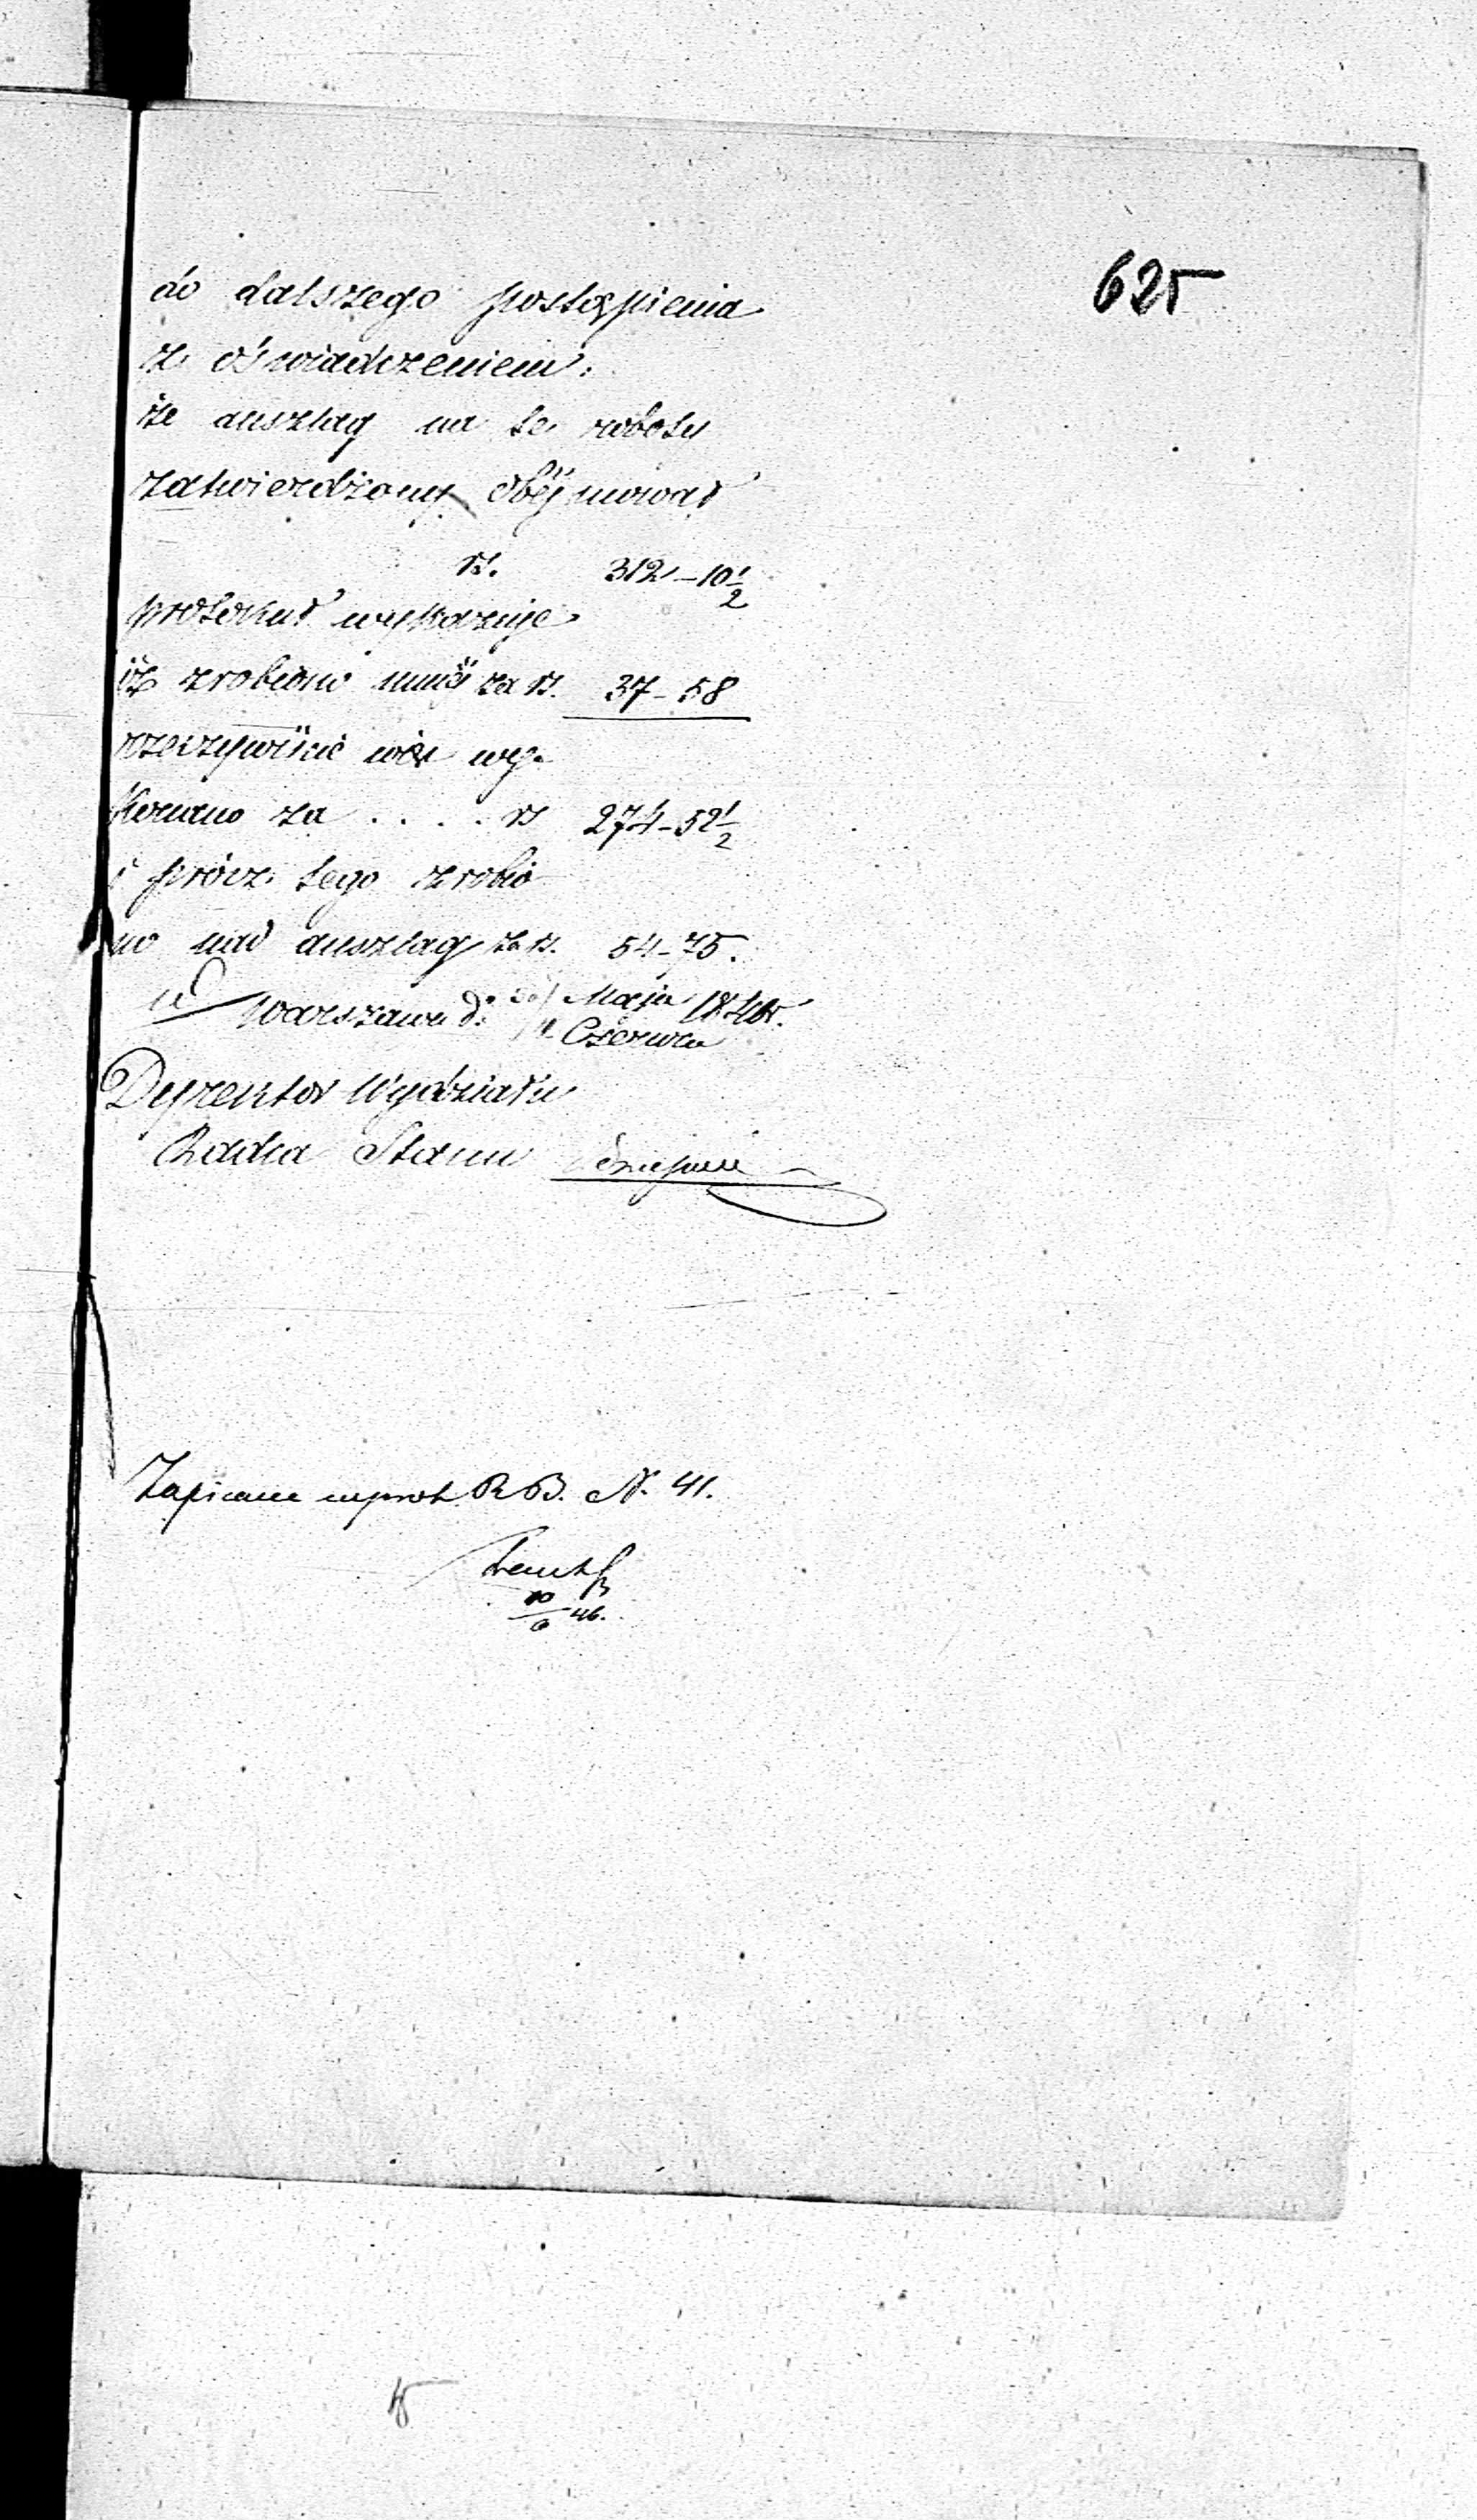 625
do dalszego postąpienia
z oświadczeniem:
że anszlag na te roboty
zatwierdzony obejmował
rs. 312-10 1/2
protokuł wykazuje
iż zrobiono mniej za rs. 37-58
rzeczywiście więc wy-
konano za . . . . rs 274-52 1/2
i prócz tego zrobio
no nad anszlag za rs. 54-75.
w Warszawie d: 30/ Maja 1846r.
/11 Czerwca
Dyrektor Wydziału
Radca Stanu
Zapisane w prot. R B. N. 41.
10/6 46.